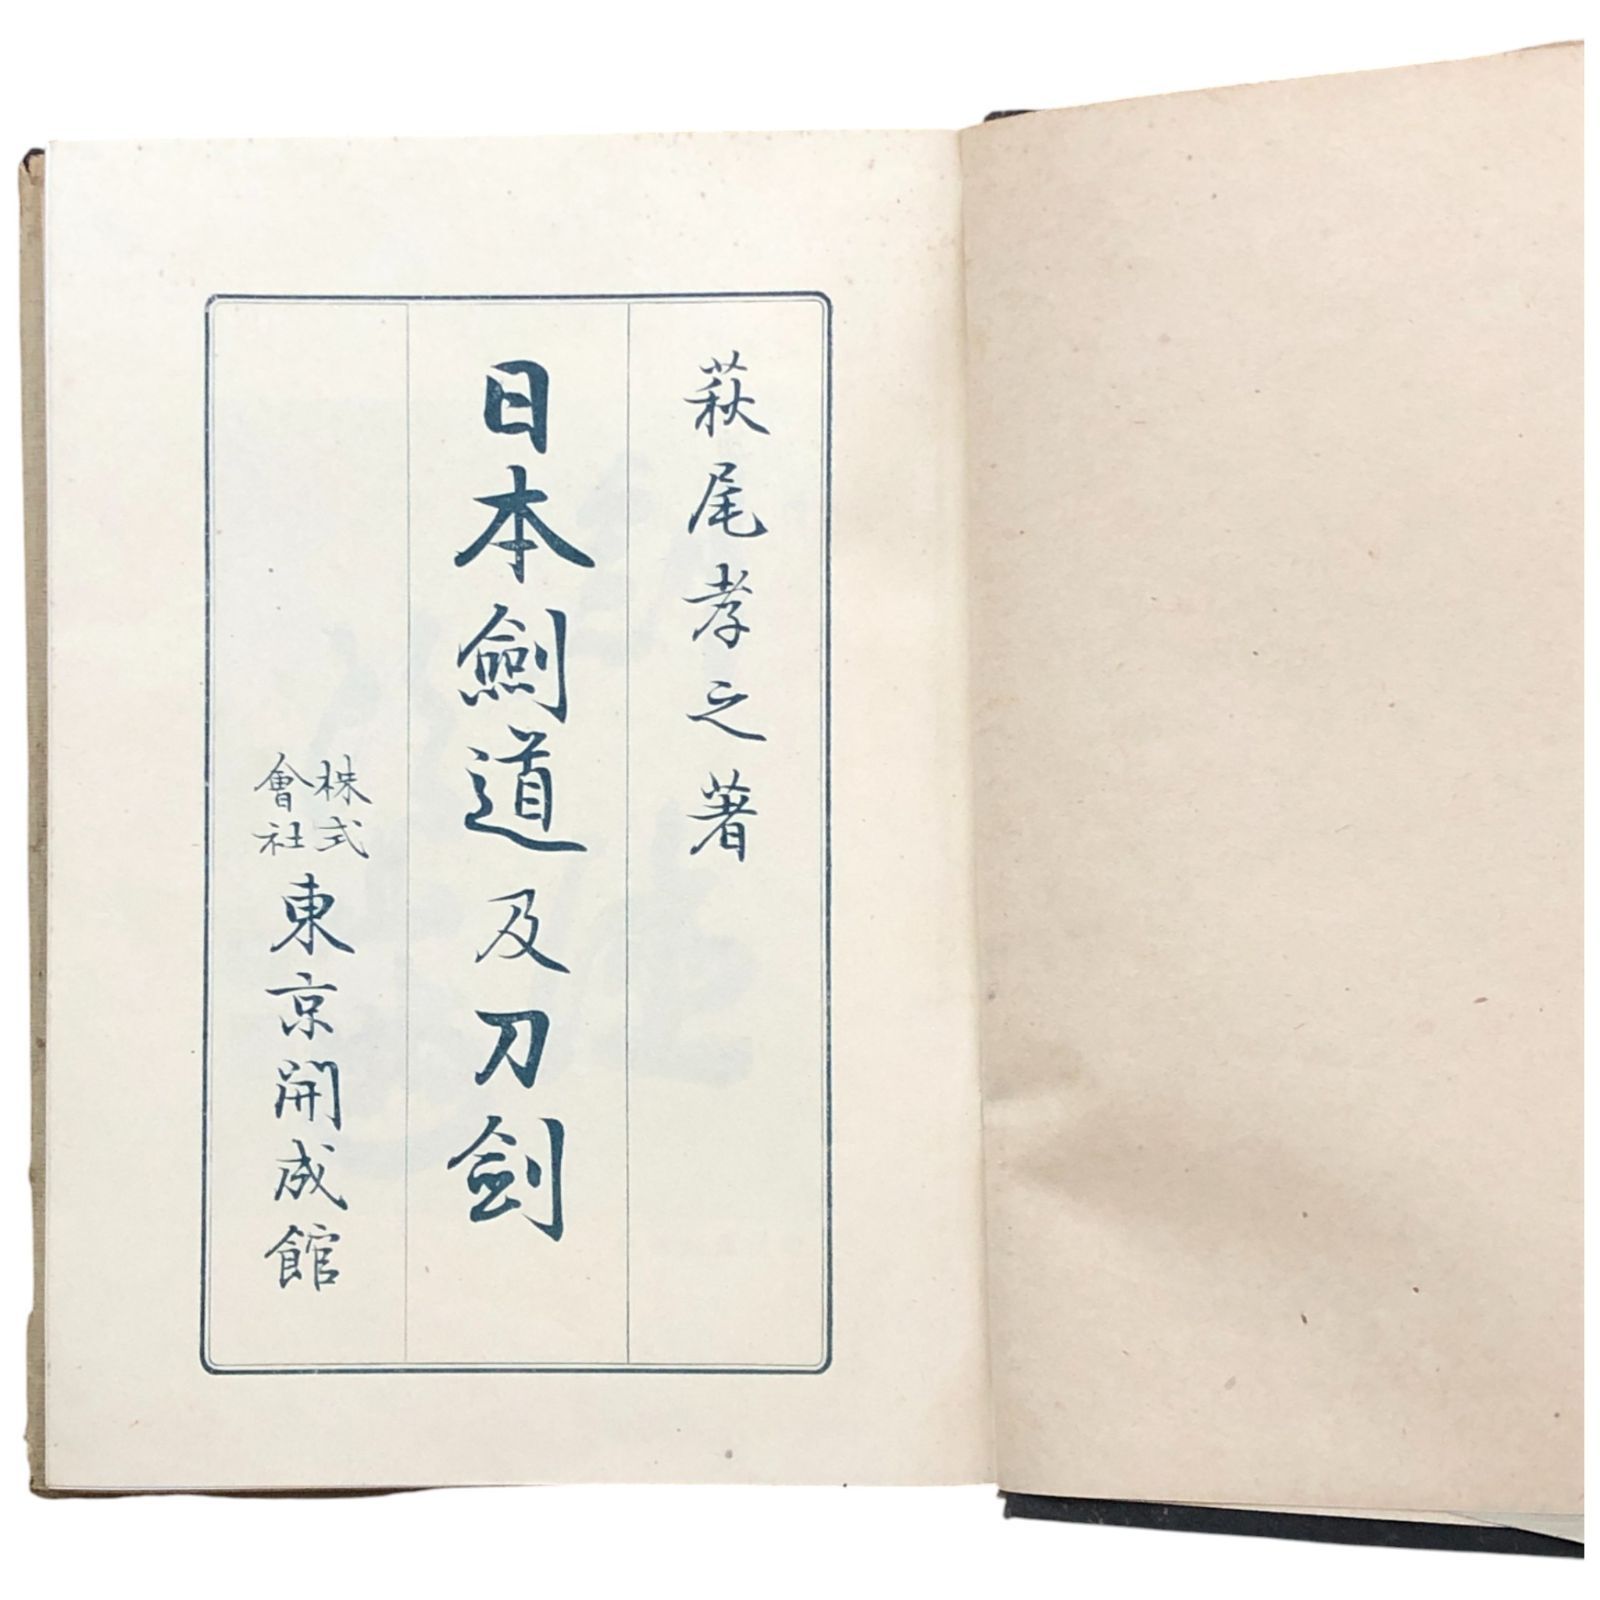 萩尾孝之著
日本劍道及刀劍
株式會社 東京開成館